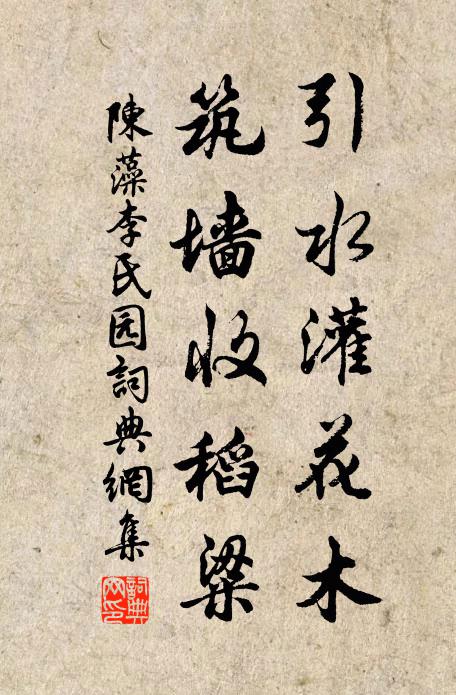 引水灌花木
筑墙收稻粱
陳藻李氏园詞典網集
詞典网印